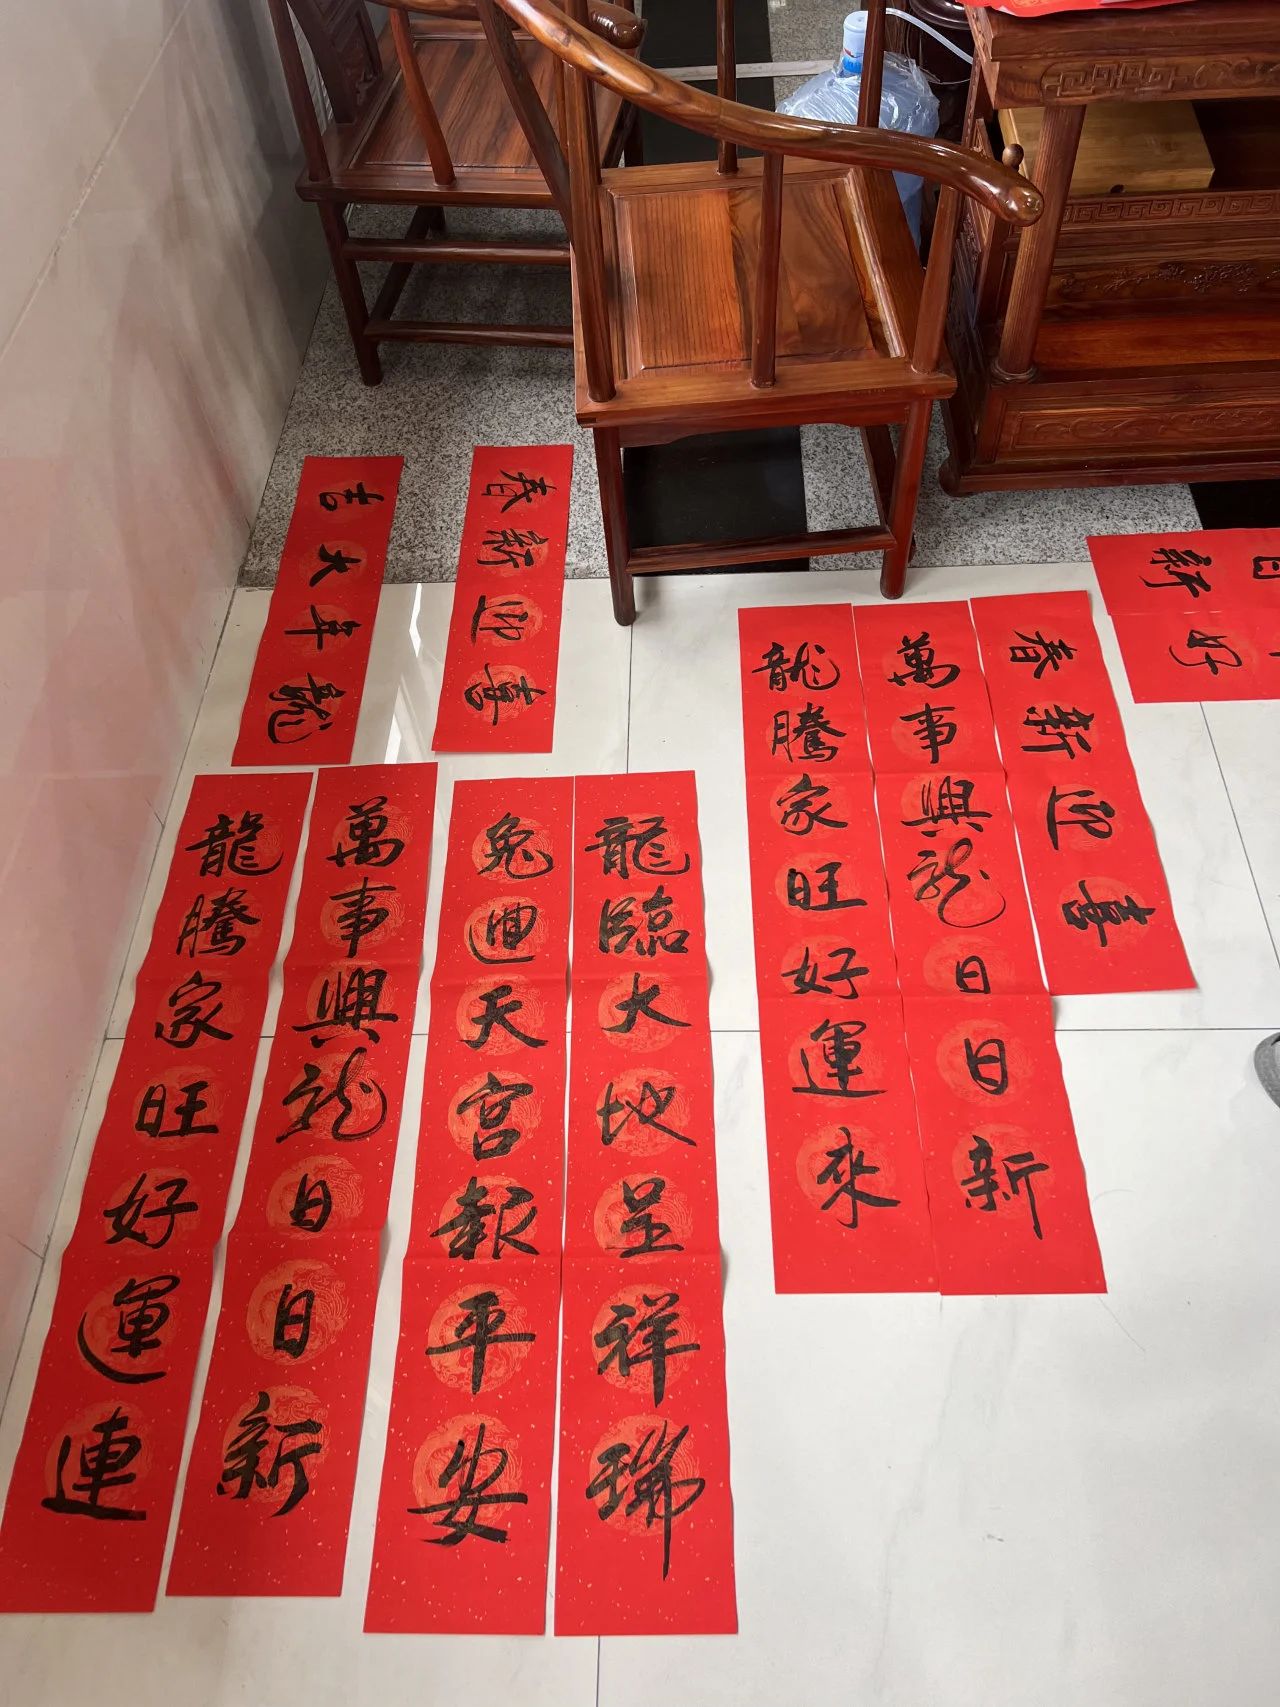 龍年大吉
喜迎新春
龍騰家旺好運連
萬事興龍日日新
兔迴天宮報平安
龍臨大地呈祥瑞
龍騰家旺好運來
萬事興龍日日新
喜迎新春
新
好